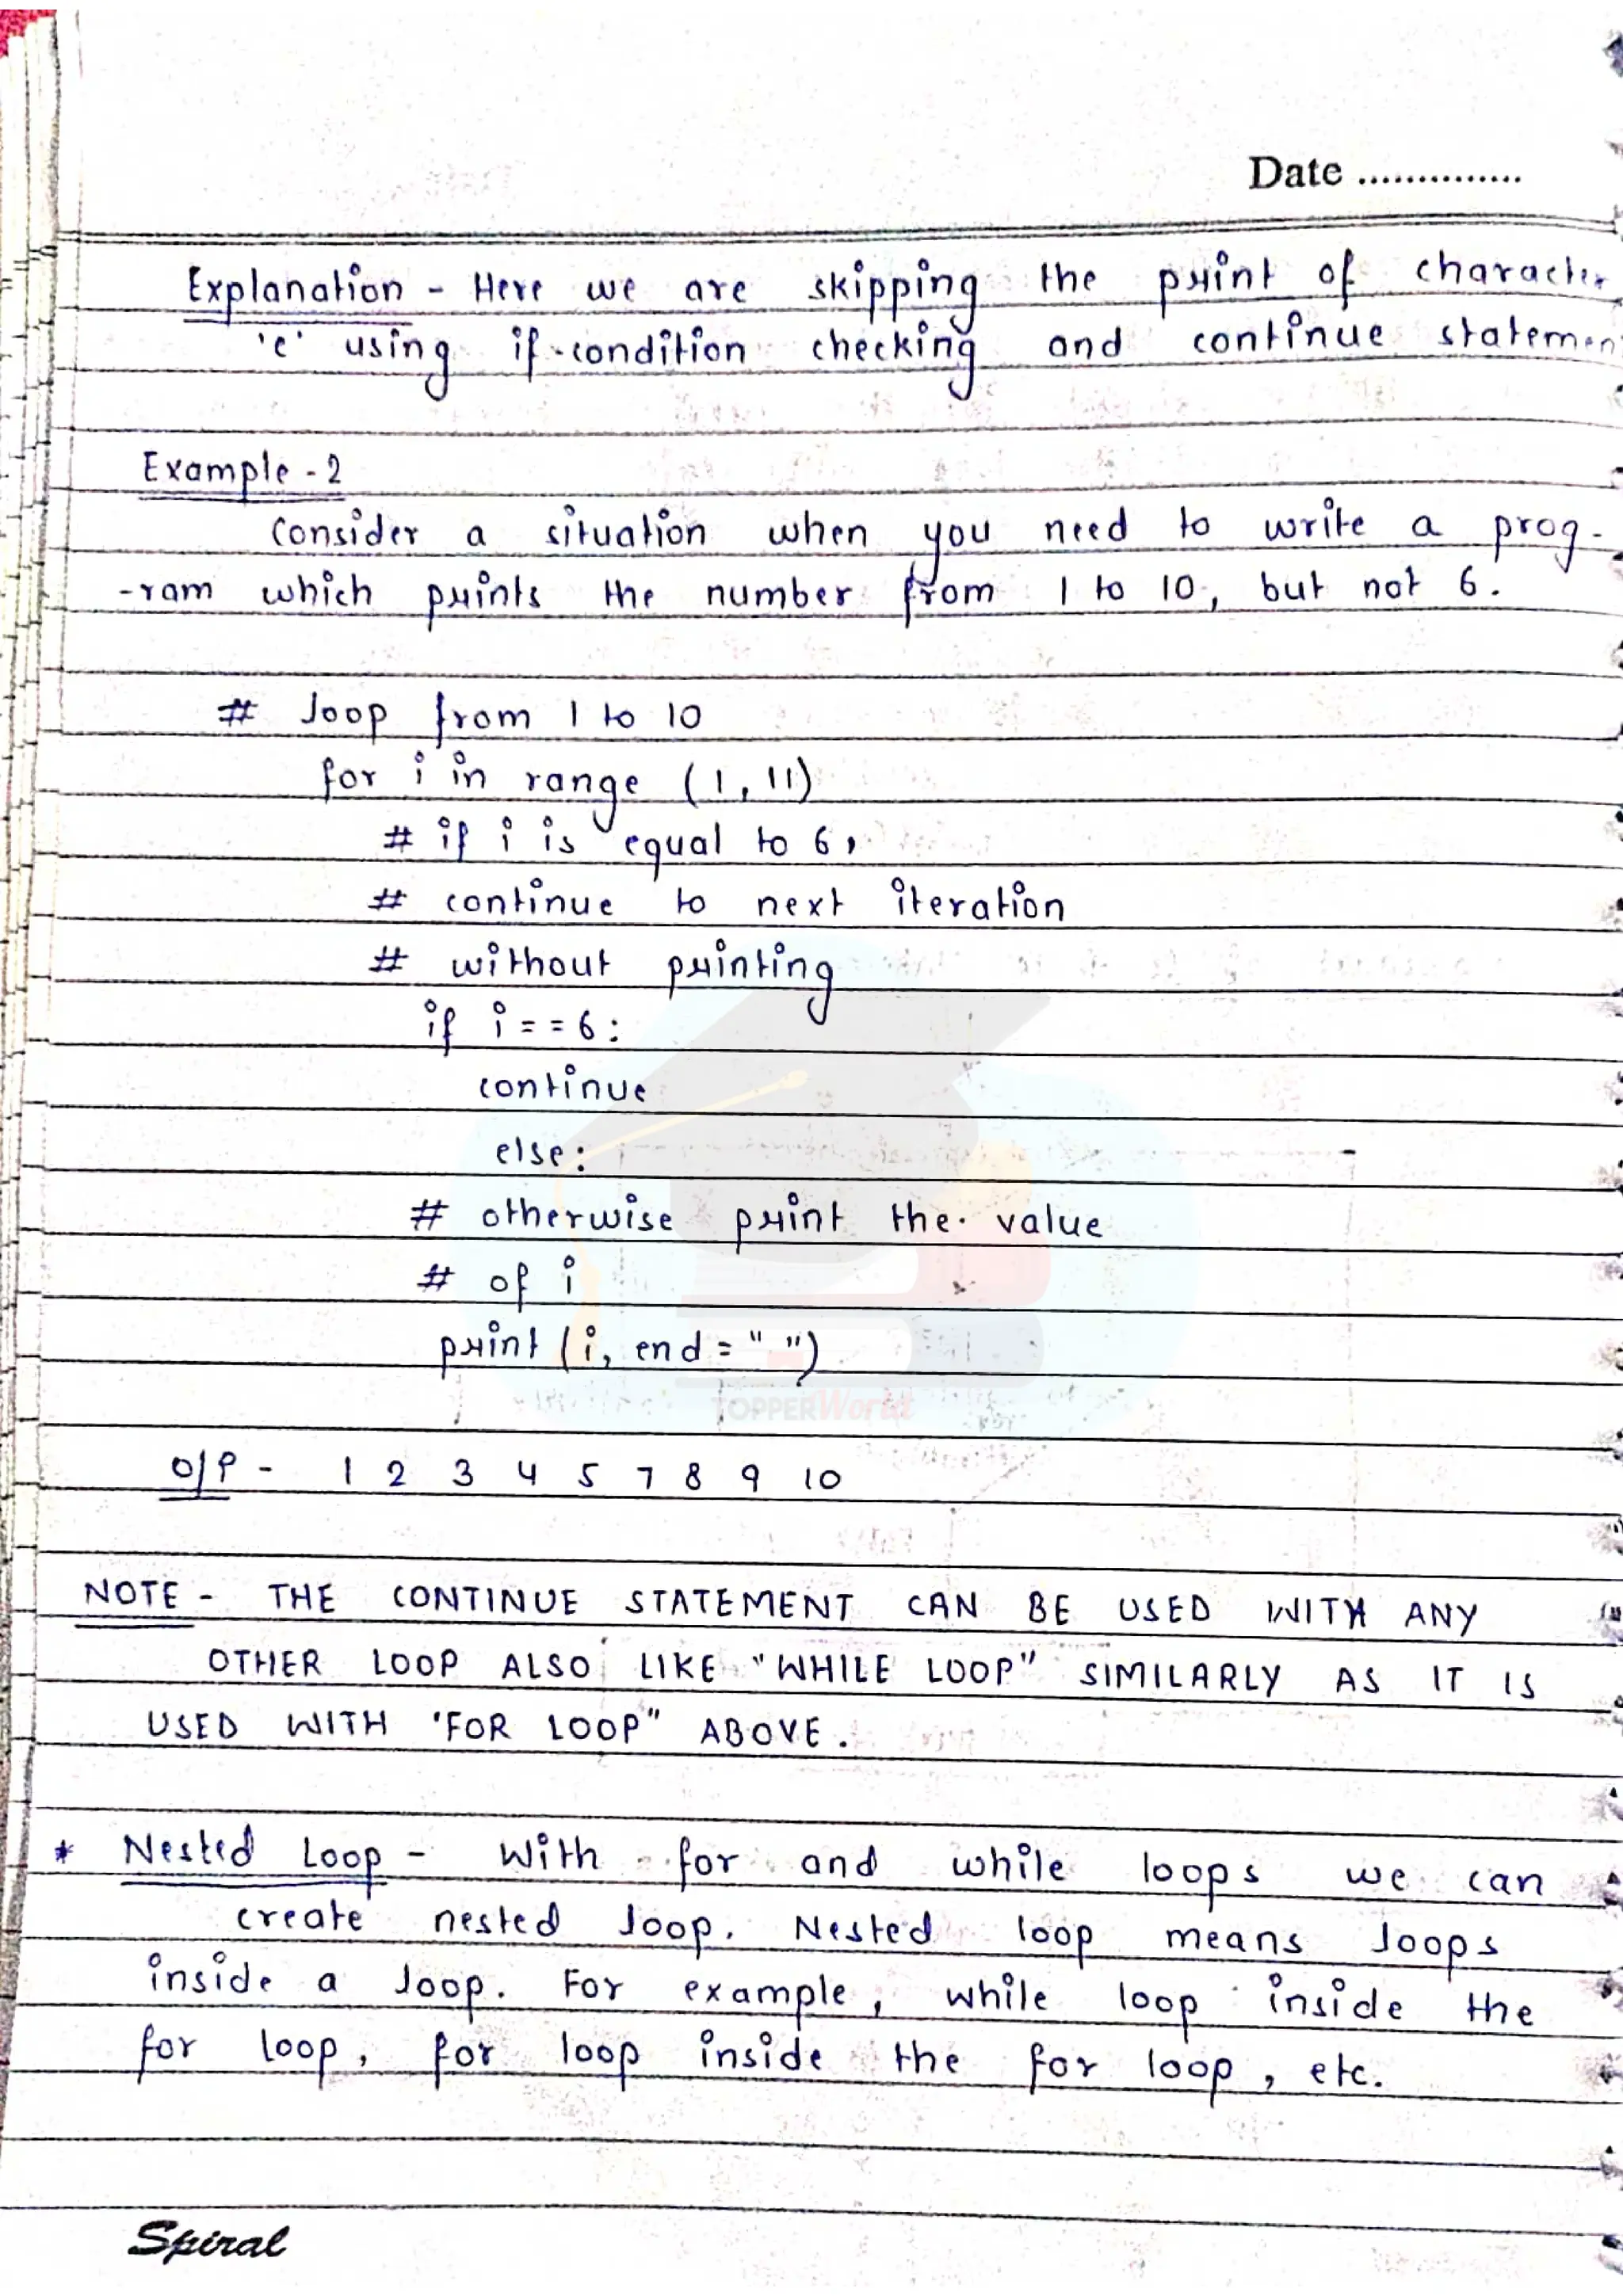 Date ..............
Explanation - Here we are skipping the print of character
'e' using if-condition checking and continue statemen
Example - 2
Consider a situation when you need to write a prog-
-ram which prints the number from 1 to 10, but not 6.
# loop from 1 to 10
for i in range (1, 11)
# if i is equal to 6,
# continue to next iteration
# without printing
if i == 6:
continue
else:
# otherwise print the value
# of i
print (i, end = " ")
TOPPERWorld
O/P - 1 2 3 4 5 7 8 9 10
NOTE - THE CONTINUE STATEMENT CAN BE USED WITH ANY
OTHER LOOP ALSO LIKE "WHILE LOOP" SIMILARLY AS IT IS
USED WITH 'FOR LOOP" ABOVE.
* Nested Loop - With for and while loops we can
create nested loop. Nested loop means loops
inside a loop. For example, while loop inside the
for loop, for loop inside the for loop, etc.
Spiral